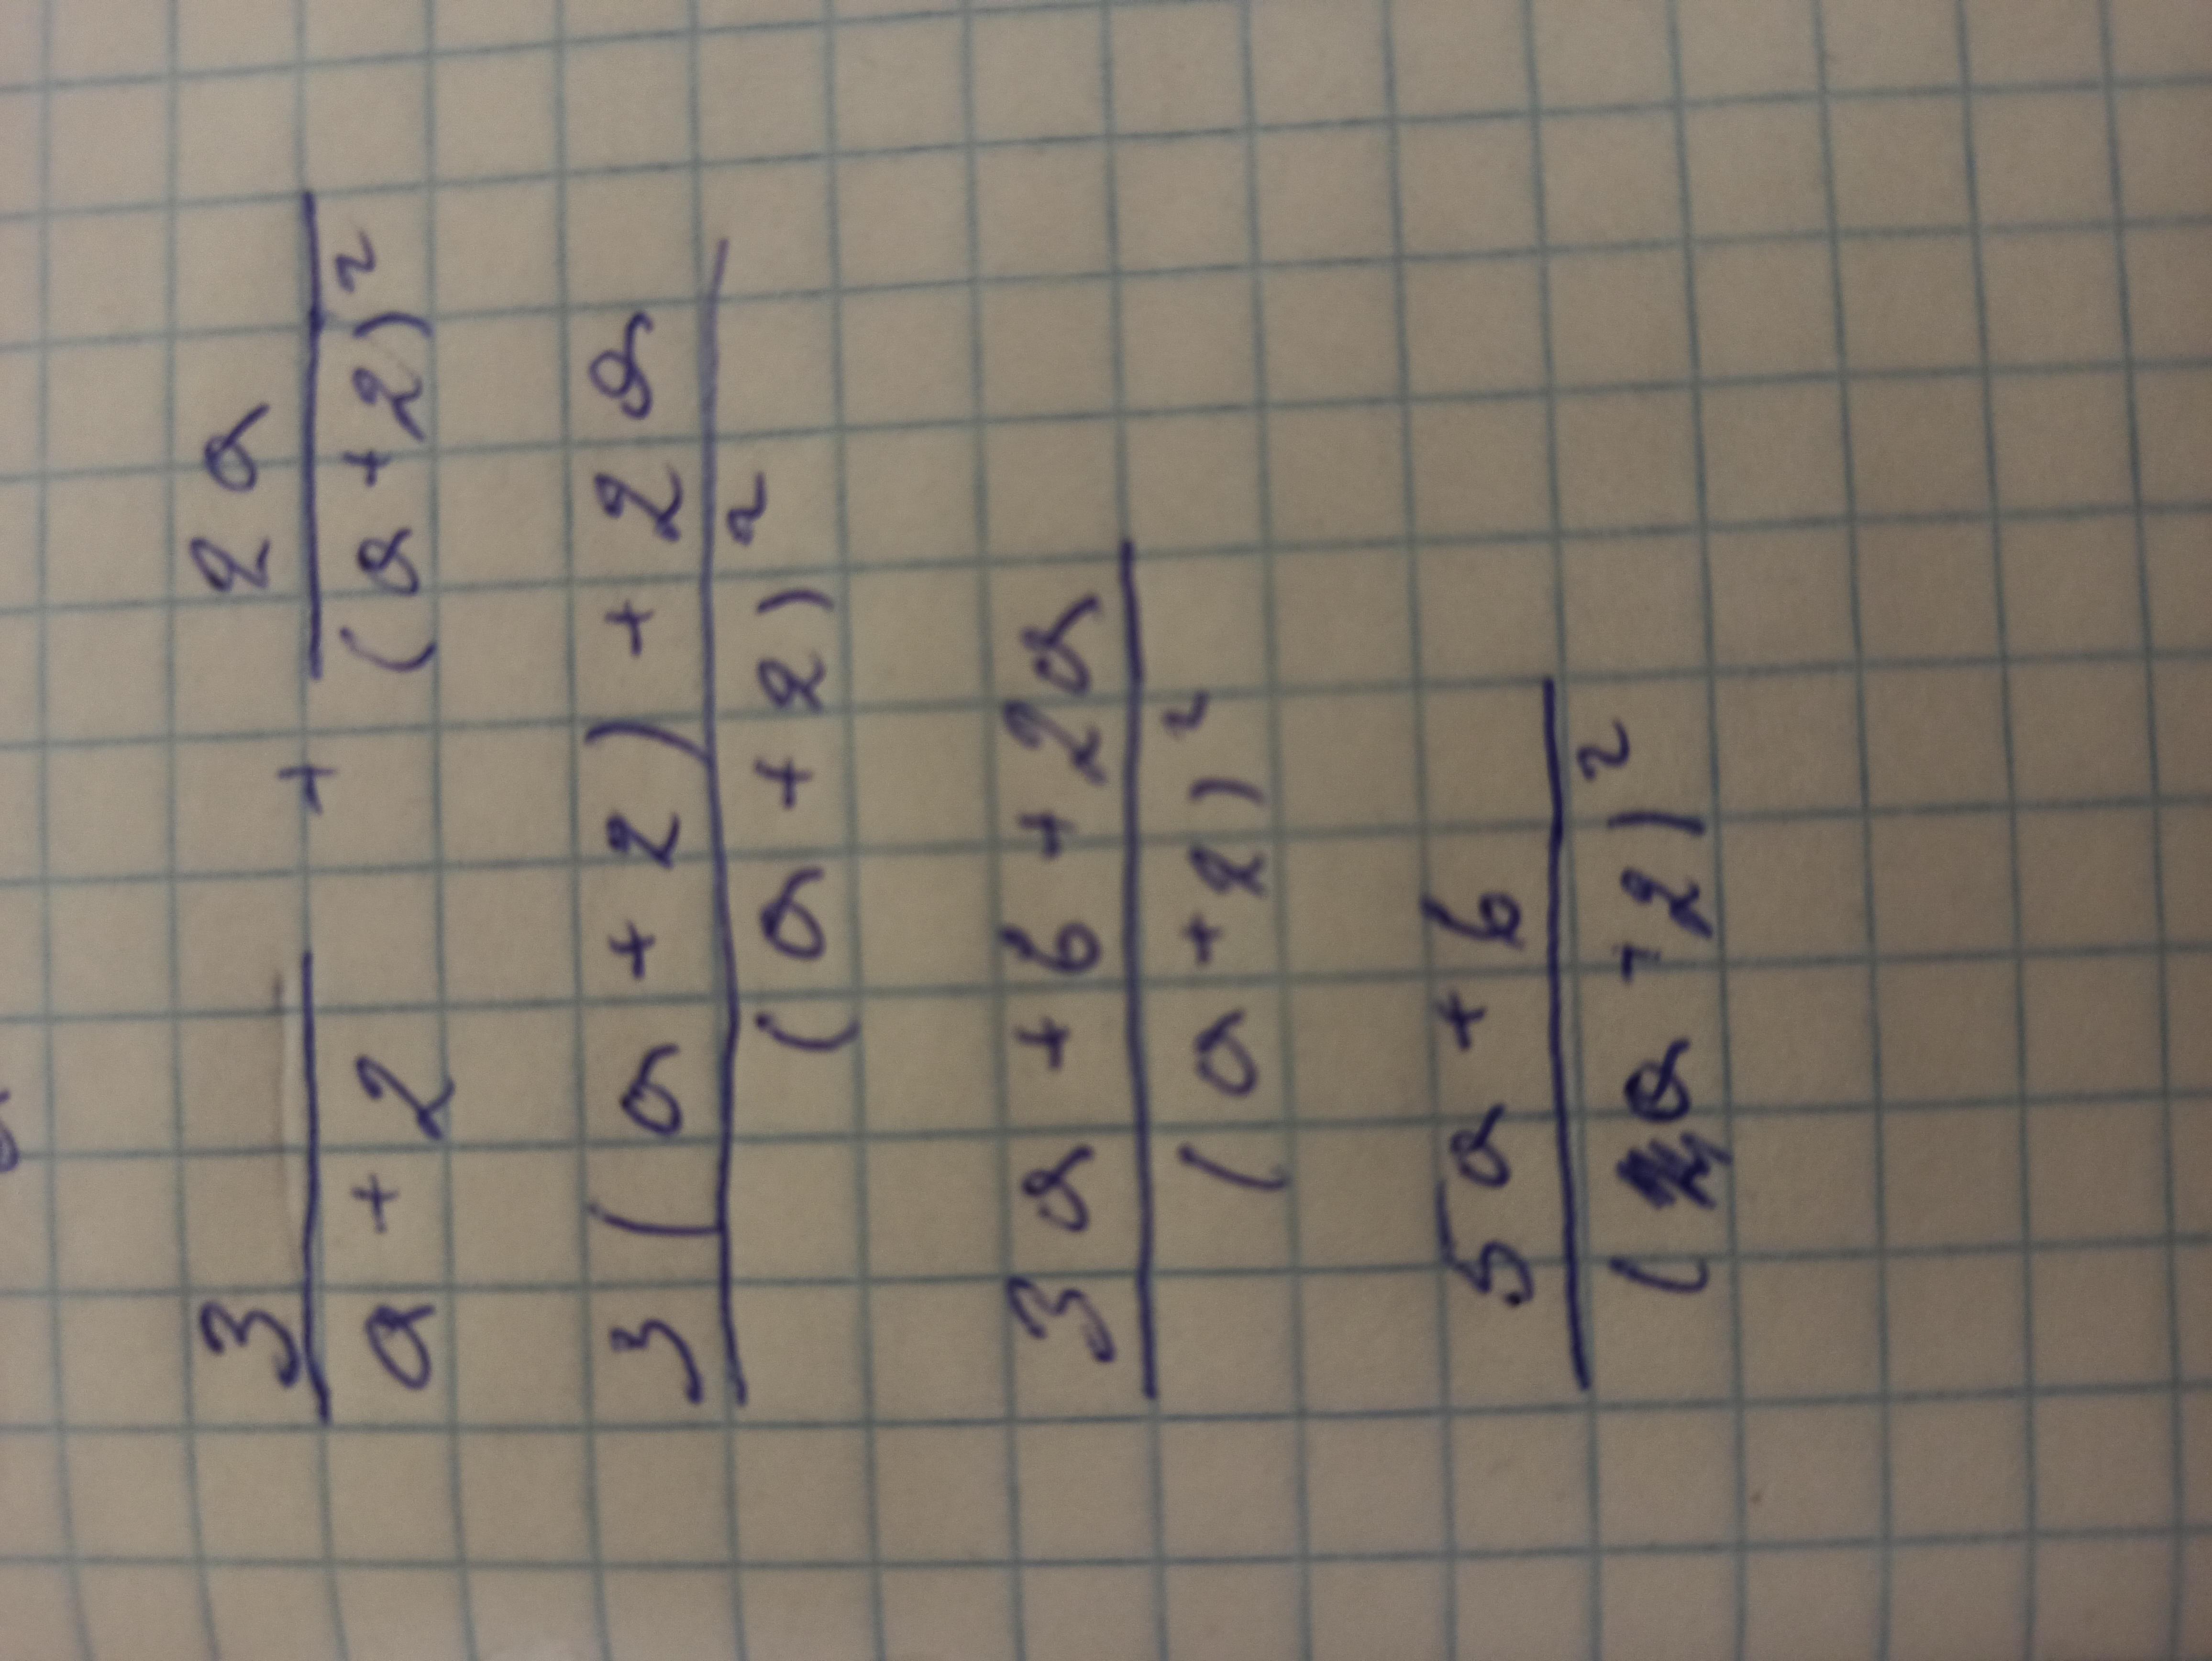 3 / a + 2 + 2a / (a + 2)²
3(a + 2) + 2a / (a + 2)²
3a + 6 + 2a / (a + 2)²
5a + 6 / (a + 2)²